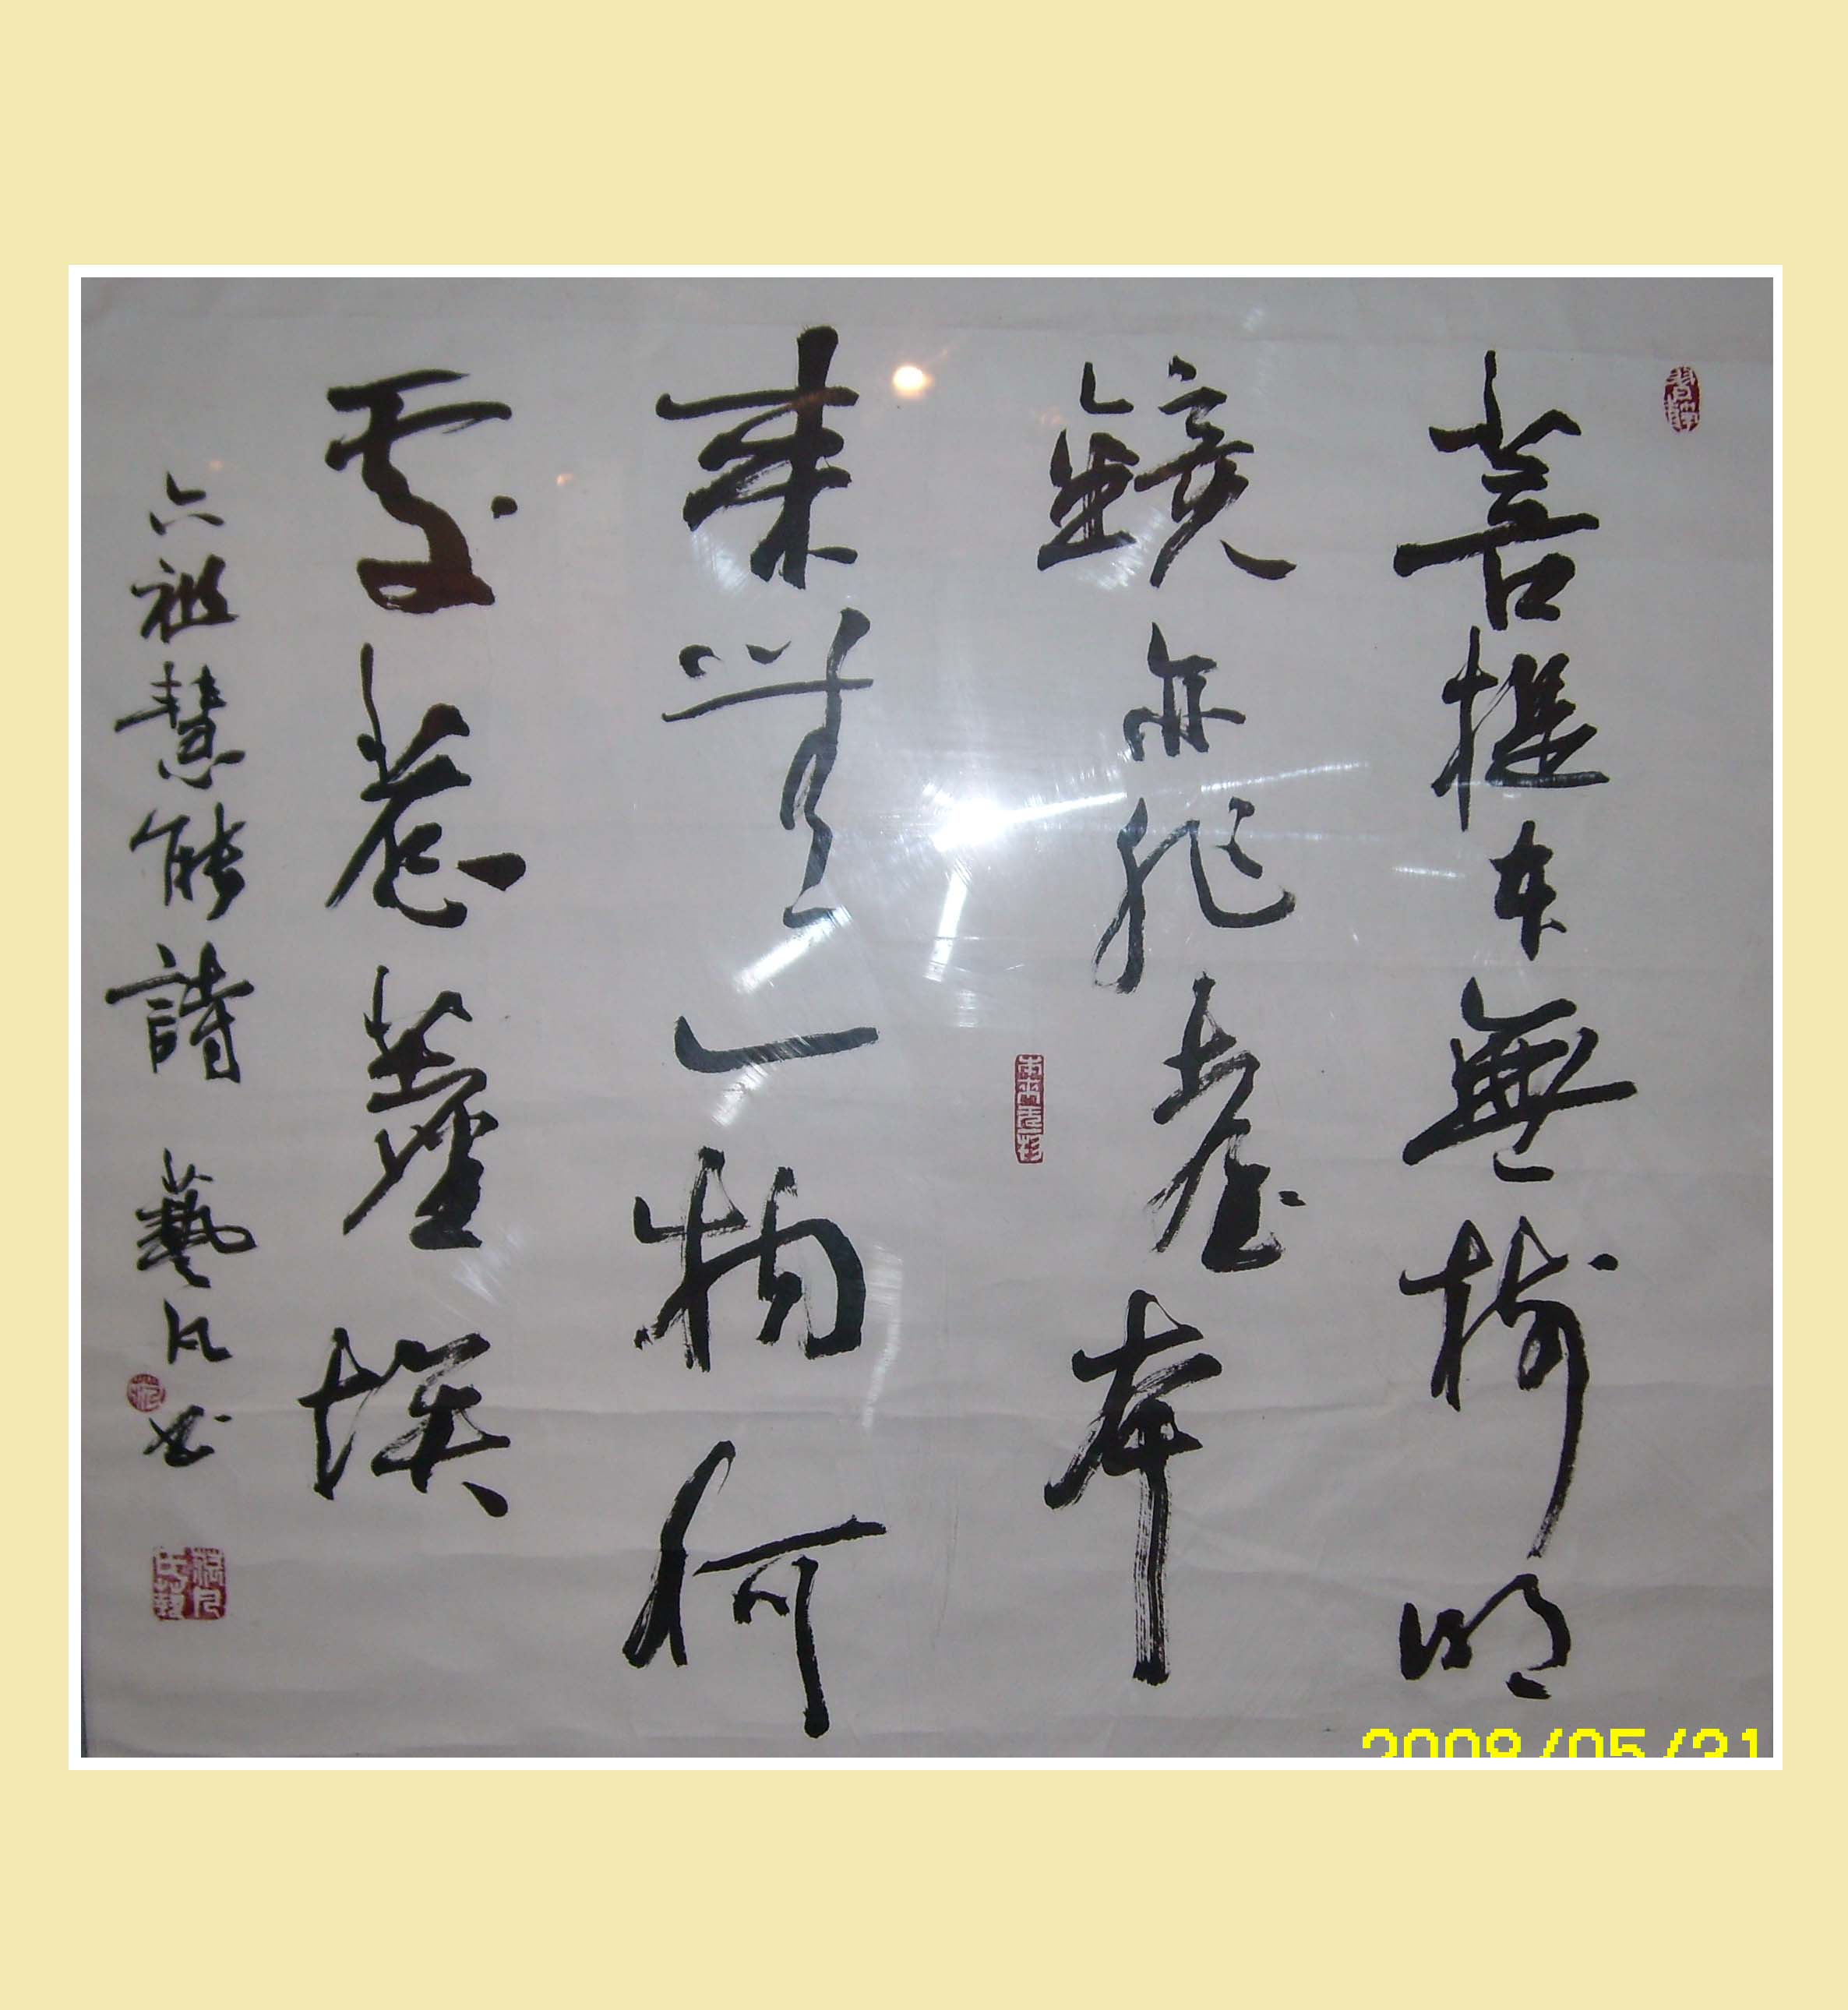 菩提本無樹明
鏡亦非臺本
來無一物何
處惹塵埃
六祖慧能詩 藝凡书